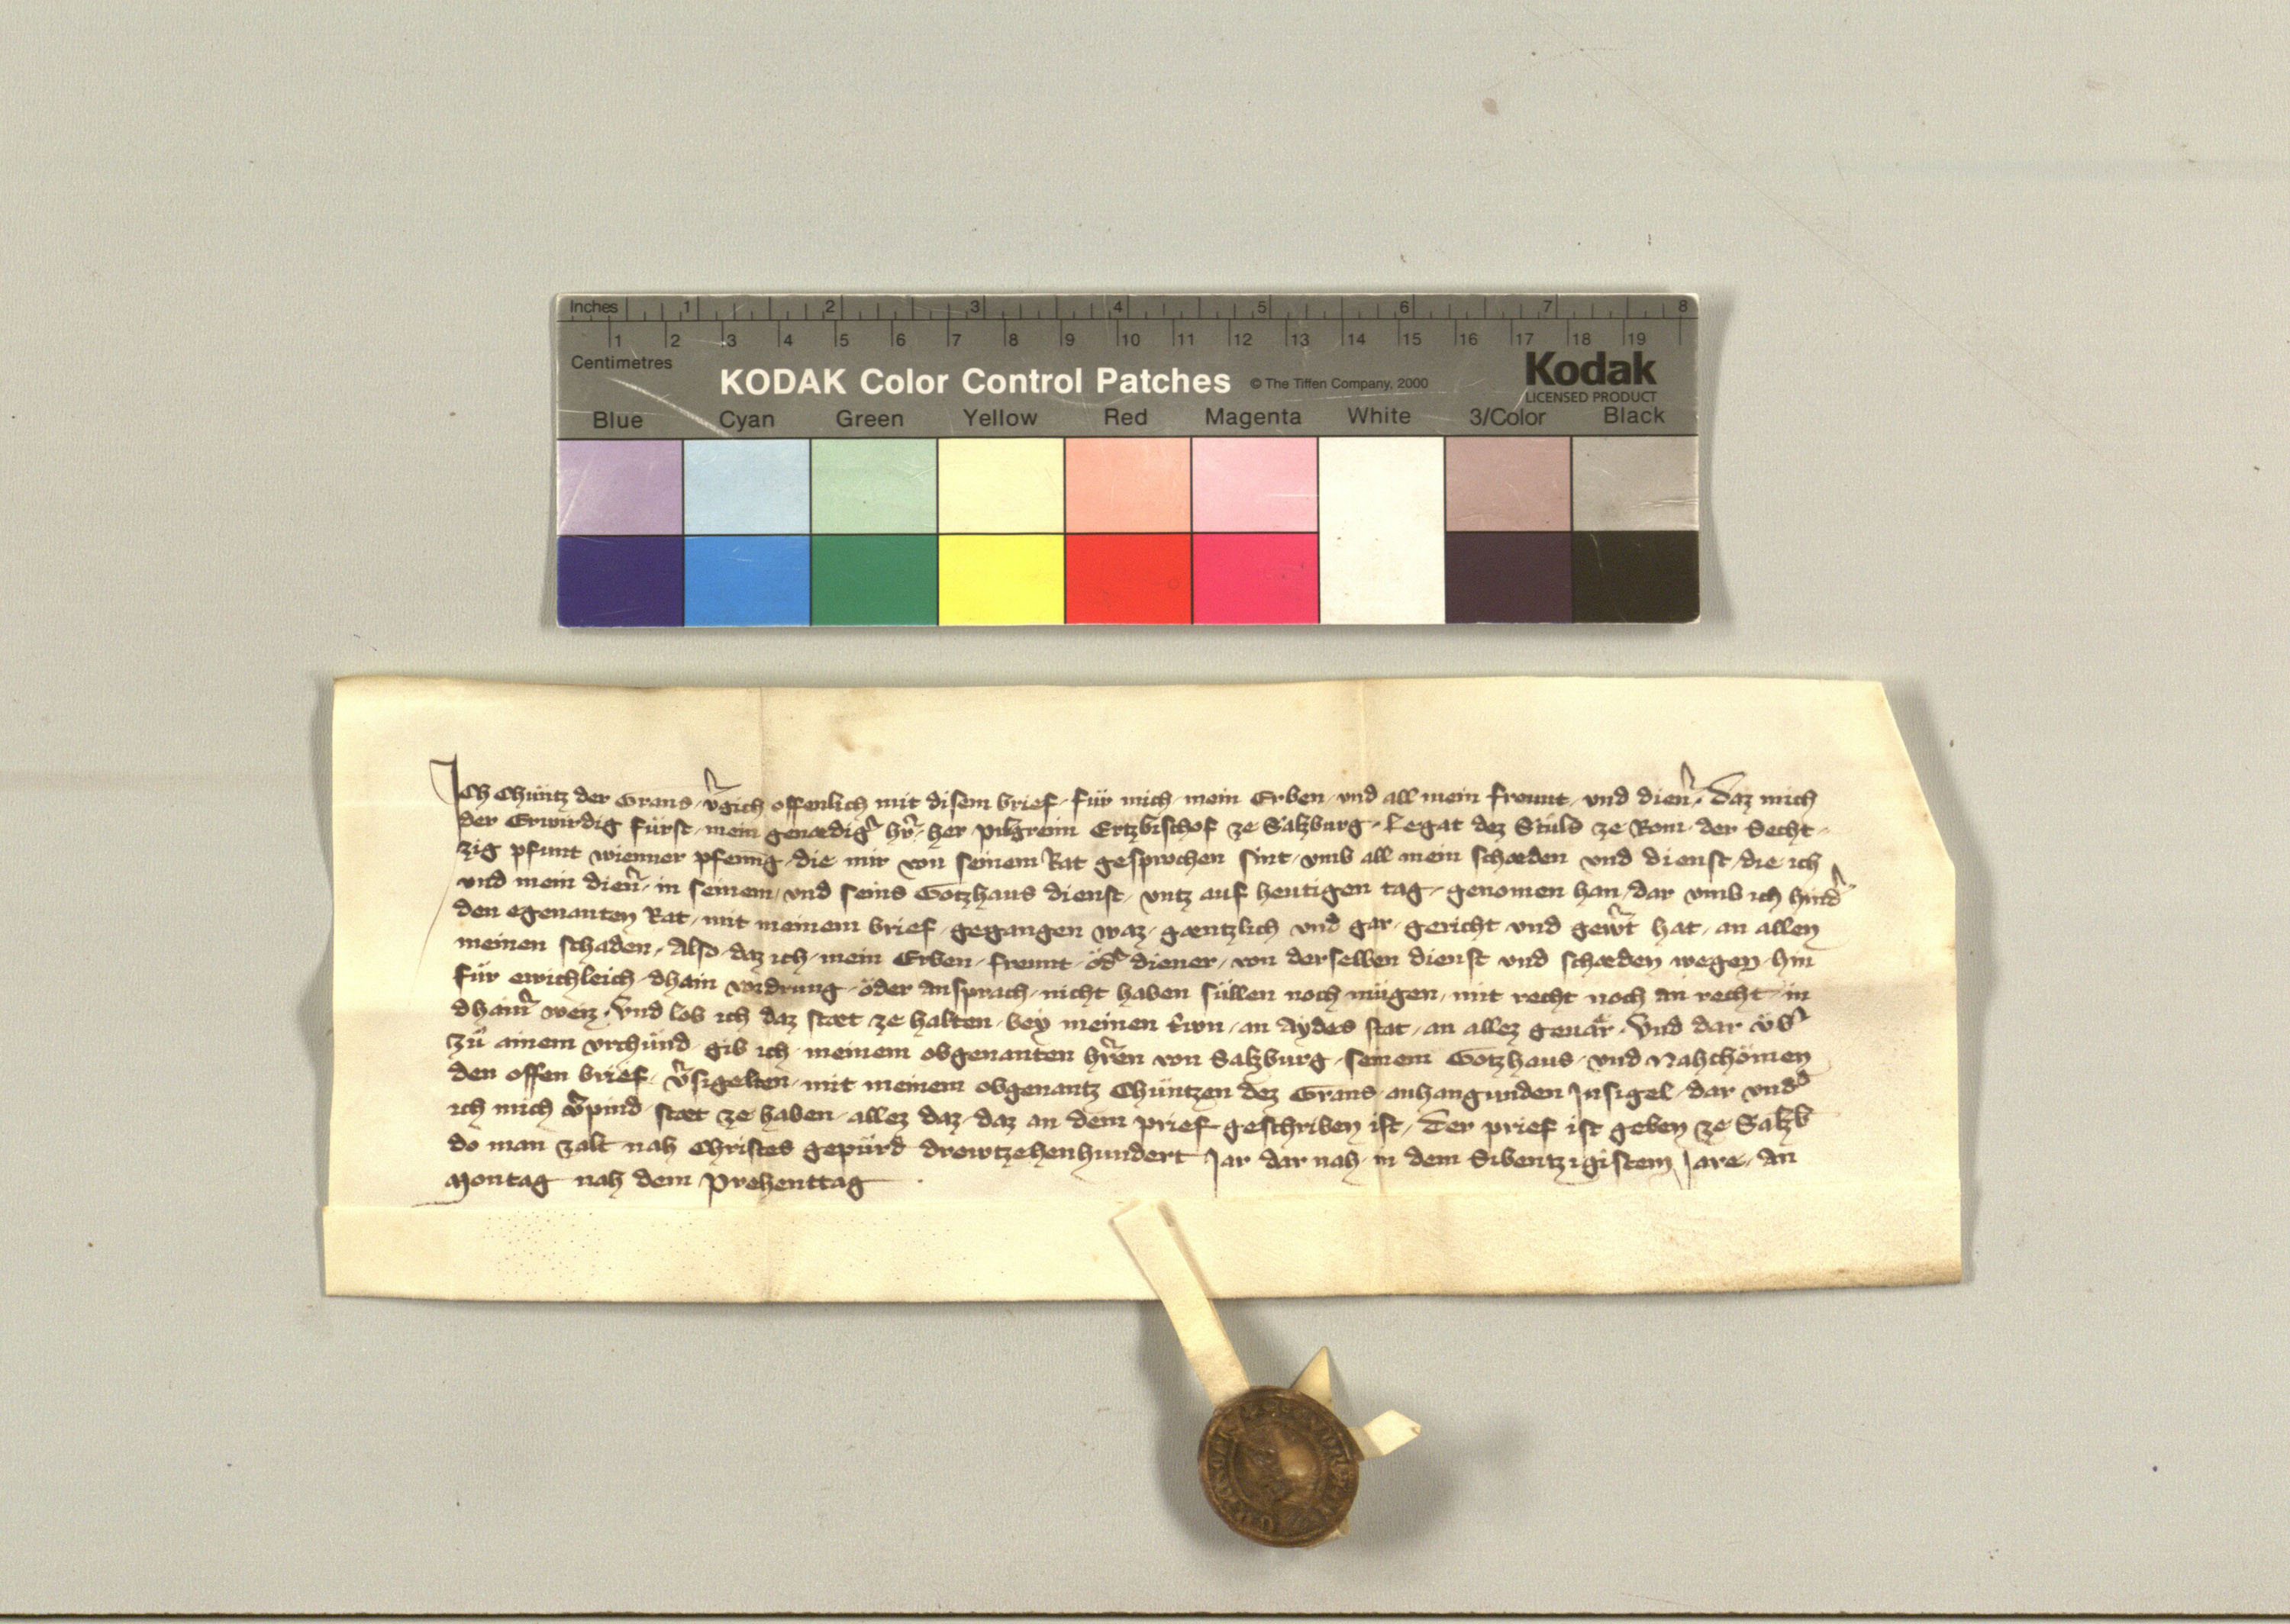 Inches 1 2 3 4 5 6 7 8
1 2 3 4 5 6 7 8 9 10 11 12 13 14 15 16 17 18 19
Centimetres
KODAK Color Control Patches © The Tiffen Company, 2000 Kodak
LICENSED PRODUCT
Blue Cyan Green Yellow Red Magenta White 3/Color Black
Ich Chüntz der Grans v̾gich offenlich mit disem brief für mich mein Erben vnd all mein freunt vnd dien̾ Daz mich
der Erwirdig fürst mein genædig̾ hr̾ her pilgreim Ertzbischof ze Salzburg Legat dez Stuls ze Rom der Secht
zig pfunt wienner pfening die mir von seinem Rat gesprochen sint vmb all mein schæden vnd dienst die ich
vnd mein dien̾ in seinem vnd seins Gotzhaus dienst vntz auf heutigen tag genomen han dar vmb ich hind̾
den egenanten Rat mit meinem brief gegangen waz gæntzlich vnd gar gericht vnd gew̾t hat an allen
meinen schaden Also daz ich mein Erben freunt öd̾ diener von derselben dienst vnd schæden wegen hin
für ewichleich dhain vordrung öder ansprach nicht haben süllen noch mügen mit recht noch an recht in
dhain̾ weiz Vnd lob ich daz stæt ze halten bey meinen trwn an Aydes stat an allez geuär Vnd dar üb̾
zü ainem vrchünd gib ich meinem obgenanten hr̾en von Salzburg seinem Gotzhaus vnd Nahchömen
den offen brief v̾sigelten mit meinem obgenantz Chüntzen dez Grans anhangunden Insigel dar vnd̾
ich mich v̾pind stæt ze haben allez daz daz an dem prief geschriben ist Der prief ist geben ze Salzb
do man zalt nah Christes gepürd drewtzehenhundert Jar dar nah in dem Sibentzigistem Jare An
Montag nah dem Prehenttag